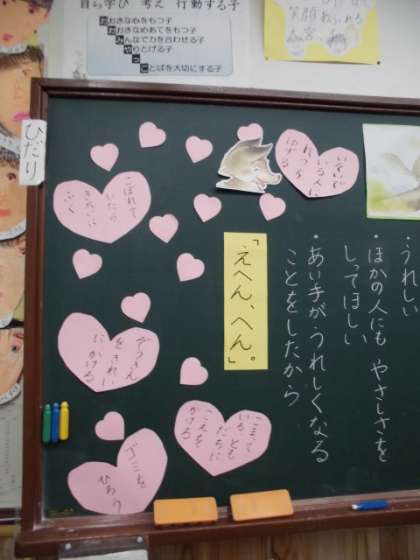 自ら学び 考え 行動する子
おおきな心をもつ子
おおきなめあてをもつ子
みんなで力を合わせる子
やりとげる子
っ
ことばを大切にする子
笑顔あふれる
ひだり
こぼれて
いたら
きれいに
ふく
ぞうきん
をきれい
にかける
ゴミを
ひろう
こまって
いるとも
だちに
こえを
かける
「えへん、へん」。
・うれしい
・ほかの人にも やさしさを
してほしい
・あい手が、うれしくなる
ことをしたから